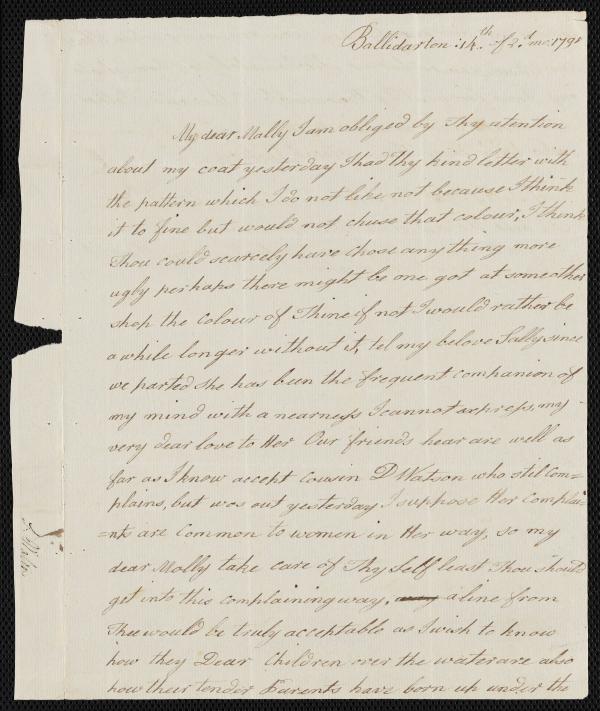 Ballidarton 14th of 2d mo: 179
My dear Molly I am obliged by Thy atention
about my coat yesterday I had Thy kind letter with
the pattern which I do not like, not because I think
it to fine but would not chuse that colour, I think
Thou could scarcely have chose any thing more
ugly perhaps there might be one got at some other
shop the Colour of Thine if not I would rather be
a while longer without it, tel my belove Sally since
we parted she has been the frequent companion of
my mind with a nearness I cannot express, my
very dear love to Her Our friends hear are well as
far as I know accept cousin D Watson who stil com=
plains, but wos out yesterday I suppose Her complai=
=nts are common to women in Her way, so my
dear Molly take care of Thy Self least Thou should
get into this complaining way, a line from
Thee would be truly acceptable as I wish to know
how they Dear Children over the water are also
how their tender Parents have born up under the